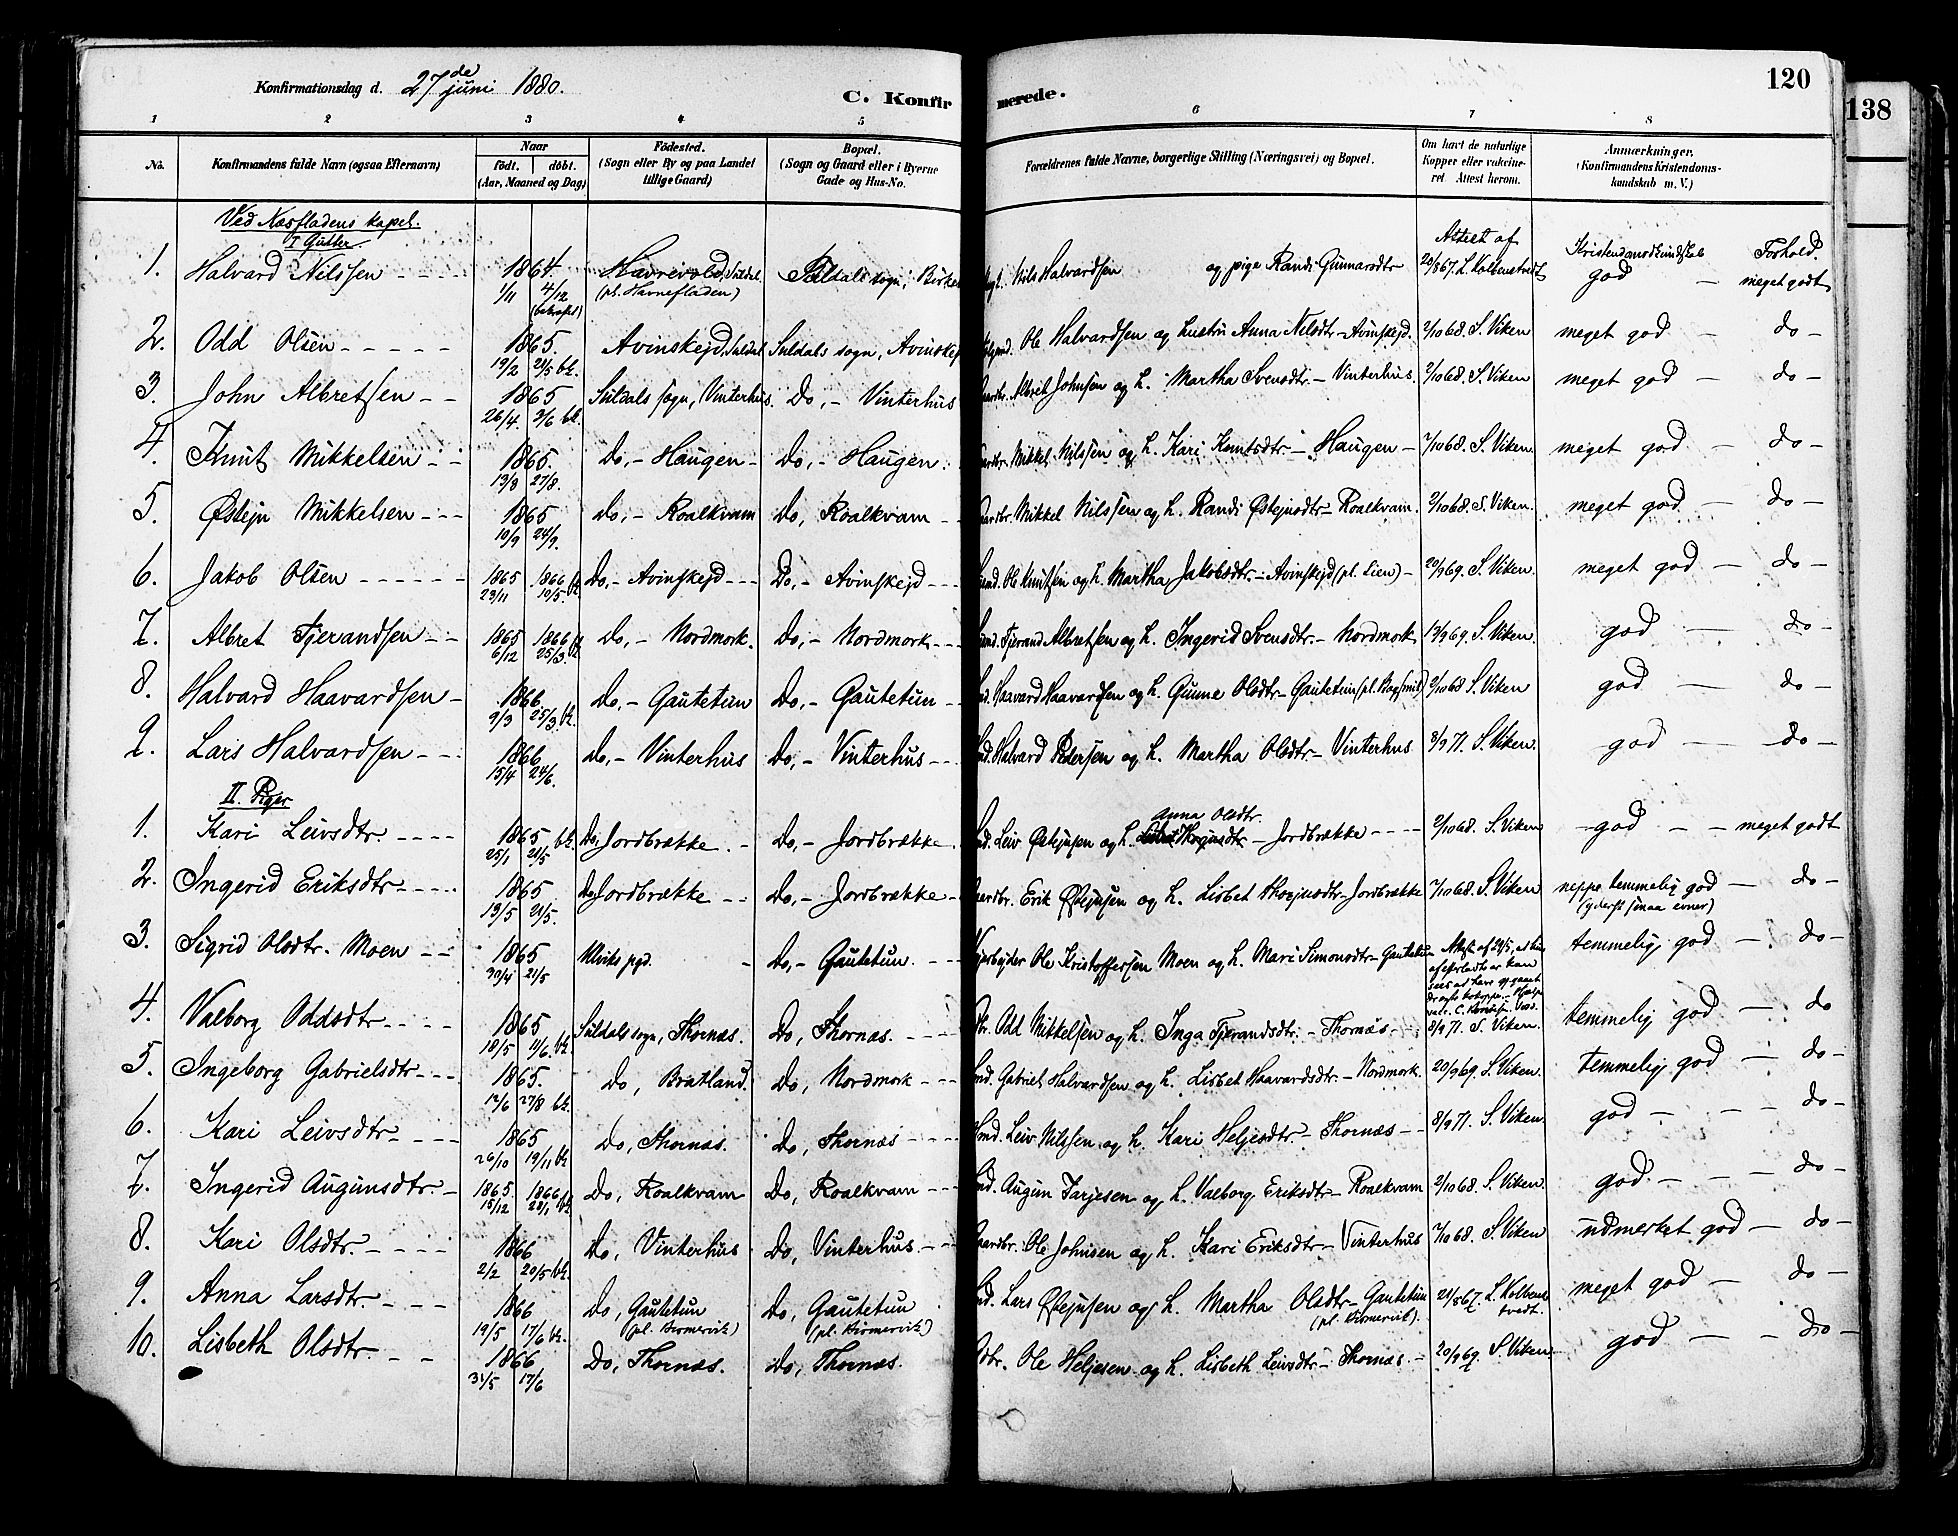 Konfirmationsdag d. 27de juni 1880.
C. Konfirmerede.
120
138
1 2 3 4 5 6 7 8
No. Konfirmandens fulde Navn (ogsaa Efternavn) Naar født. døbt. (Aar, Maaned og Dag) Fødested. (Sogn eller By og paa Landet tillige Gaard) Bopæl. (Sogn og Gaard eller i Byerne Gade og Hus-No. Forældrenes fulde Navne, borgerlige Stilling (Næringsvei) og Bopæl. Om havt de naturlige Kopper eller vakcineret Attest herom. Anmærkninger. (Konfirmandens Kristendomskundskab m. V.)
Ved Næsfladens kapel.
I Gutter.
Attest af Kristendomskundskab Forhold.
1. Halvard Nilssen 1864. 1/11 4/12 Suldal. (pl. Havnefladen) Suldals sogn, Nils Halvardsen og pige Randi Gunnarsdtr 20/867. L. Kolbenstvedt god meget godt
2. Odd Olsen 1865. 19/2 21/5 bk. Avinskejd, Suldal Suldals sogn, Ole Halvardsen og hustru Anna Nilsdtr - Avinskejd. 2/1068. S. Viken meget god - do -
3. John Albretsen 1865 26/4. 3/6 bk. Suldals sogn, Vinterhus. Do, - Vinterhus Albret Johnsen og h. Martha Svensdtr. - Vinterhus. 2/1068. S. Viken meget god - do -
4. Knut Mikkelsen 1865. 13/8 27/8. Do, - Haugen - Do, - Haugen. Mikkel Nilssen og h. Kari Knutsdtr. - Haugen - 7/1068. S. Viken. meget god - do -
5. Østejn Mikkelsen 1865 10/9 24/9. Do, - Roalkvam Do, Roalkvam Mikkel Nilssen og h. Randi Østejnsdtr - Roalkvam. 2/1068. S. Viken. meget god - do -
6. Jakob Olsen 1865 23/11 1866 10/5. bk Do, - Avinskejd Do, - Avinskejd Ole Knutsen og h. Martha Jakobsdtr. - Avinskejd (pl. Lien) - 20/969. S. Viken. meget god - do -
7. Albret Tjerandsen 1865 6/12 1866 25/3. bk Do, - Nordmork. Do, - Nordmork Tjerand Albretsen og h. Ingerid Svensdtr. - Nordmork 13/969. S. Viken. god - do -
8. Halvard Haavardsen 1866 9/3 25/3 bk. Do, - Gautetun Do, - Gautetun Haavard Haavardsen og h. Gunne Olsdtr - Gautetun 2/1068 S. Viken god - do -
9. Lars Halvardsen 1866 15/4 24/6. Do, - Vinterhus Do, - Vinterhus Halvard Pedersen og h. Martha Olsdtr - Vinterhus 8/971. S. Viken. god - do -
II. Piger
1. Kari Leivsdtr. 1865 25/1 21/5 bk. Do, Jordbrække. Do, - Jordbrække. Leiv Østejnsen og h. Anna Olsdtr. - Jordbrække 2/1068. S. Viken god - meget godt
2. Ingerid Eriksdtr. 1865 13/5 21/5. Do, Jordbrække Do, - Jordbrække Erik Østejnsen og h. Lisbet Thorjusdtr - Jordbrække 7/1068. S. Viken neppe temmelig god (yderst smaa evner) - do -
3. Sigrid Olsdtr. Moen 1865 30/4 21/5 Ulviks pgd. Do, - Gautetun. Ole Kristoffersen Moen og h. Mari Simonsdtr - Gautetun temmelig god - do -
4. Valborg Oddsdtr 1865 18/5 11/6. bk. Suldals sogn, Thornæs. Do, Thornæs. Odd Mikkelsen og h. Inga Tjerandsdtr. - Thornæs - 8/971. S. Viken. temmelig god - do
5. Ingeborg Gabrielsdtr 1865. 12/6 27/8 bk. Do, Bratland. Do, Nordmork Gabriel Halvardsen og h. Lisbet Haavardsdtr. - Nordmork. 20/969. S. Viken. temmelig god - do -
6. Kari Leivsdtr. 1865 26/10 19/11 bk Do, Thornæs. Do, Thornæs Leiv Nilssen og h. Kari Heljesdtr. - Thornæs - 8/971. S. Viken. god - do -
7. Ingerid Augunsdtr. 1865. 15/12 1866 28/1 bk Do, Roalkvam Do, Roalkvam Augun Tarjesen og h. Valborg Eriksdtr. - Roalkvam 2/1068. S. Viken. god - do -
8. Kari Olsdtr. 1866 2/2 20/5 bk. Do, Vinterhus Do, Vinterhus. Ole Johnsen og h. Kari Eriksdtr - Vinterhus 7/1068. S. Viken udmerket god - do -
9. Anna Larsdtr. 1866 19/5 17/6 bk. Do, Gautetun Do, Gautetun Lars Østejnsen og h. Martha Olsdtr - Gautetun 21/867. L. Kolbenstvedt. meget god - do -
10. Lisbeth Olsdtr. 1866 31/5 17/6 Do, Thornæs. Do, Thornæs. Ole Heljesen og h. Lisbeth Leivsdtr - Thornæs - 20/969. S. Viken god - do -